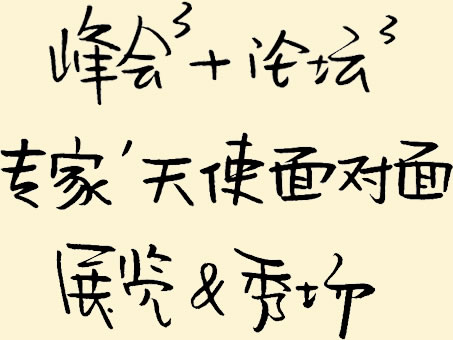 峰会³+论坛³
专家'天使面对面
展览&秀场